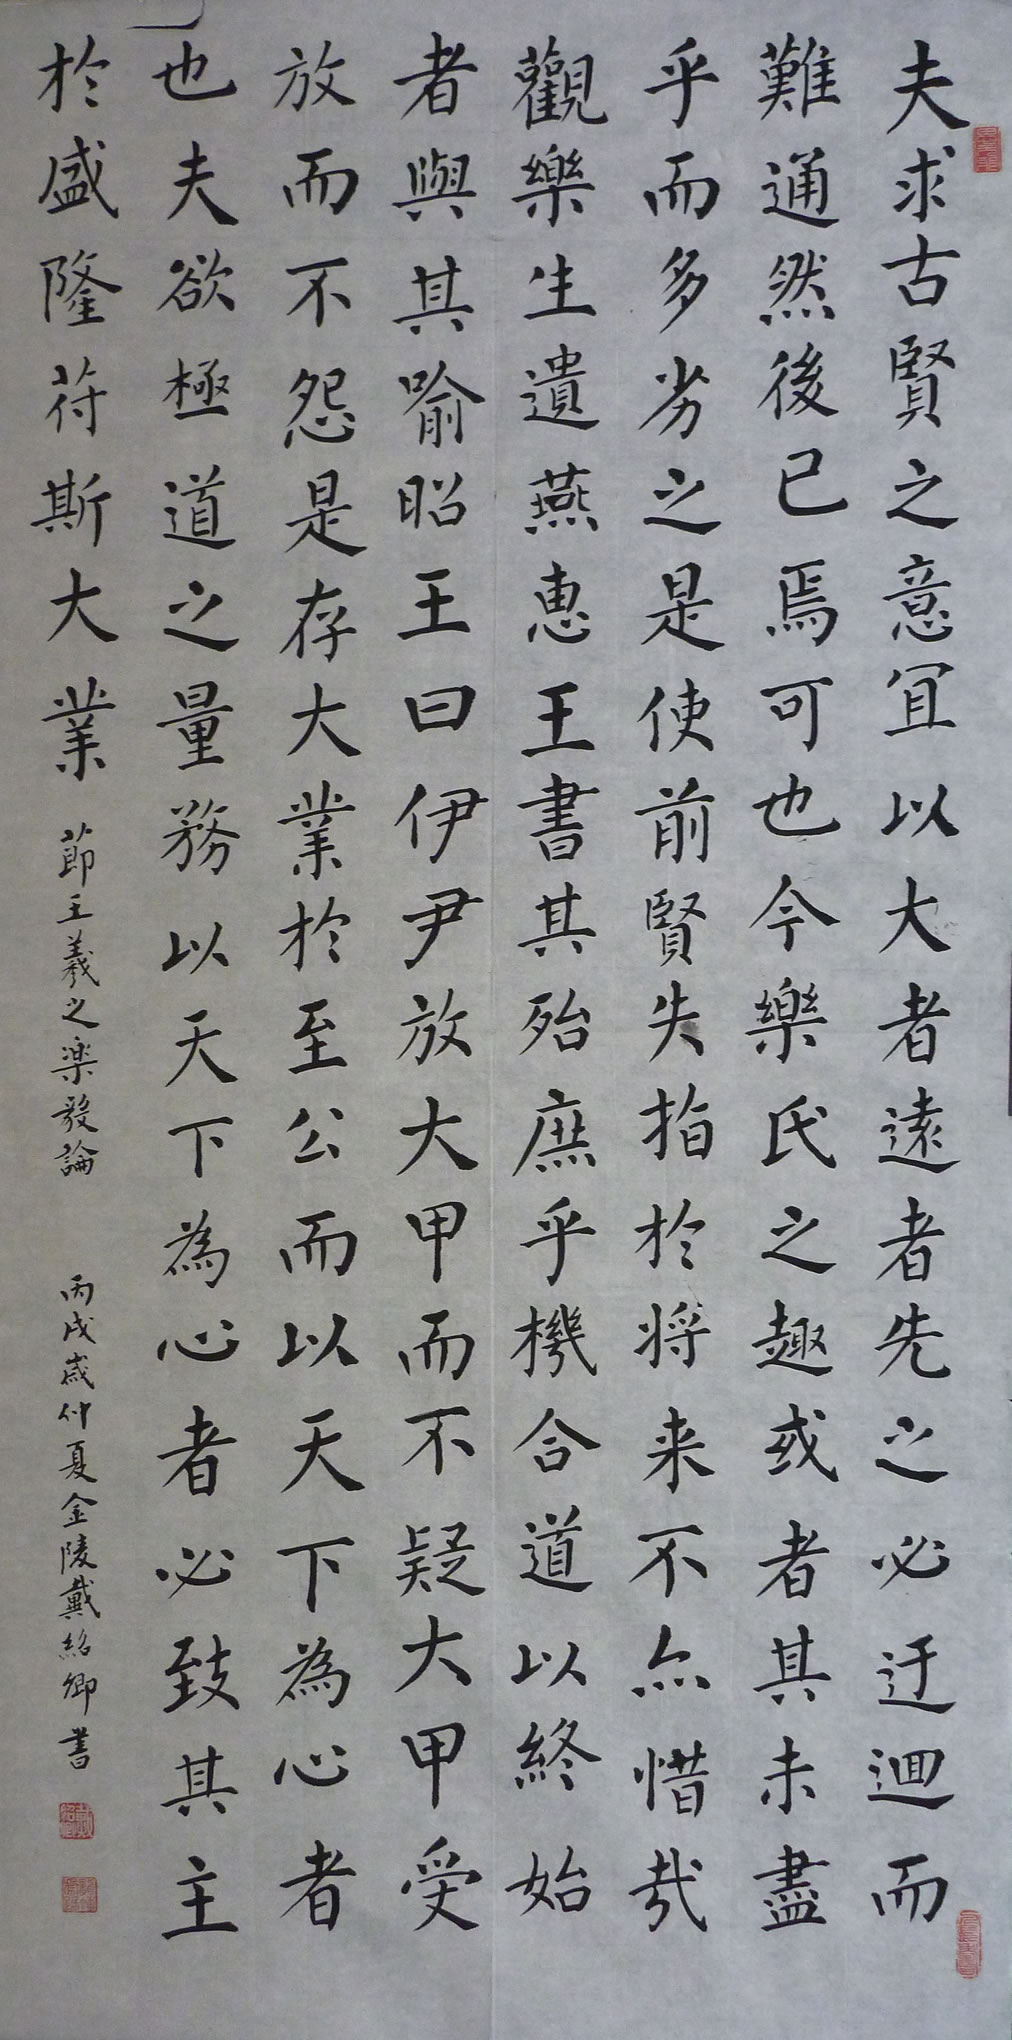 夫求古賢之意宜以大者遠者先之必迂迴而
難通然後已焉可也今樂氏之趣或者其未盡
乎而多劣之是使前賢失指於将来不亦惜哉
觀樂生遺燕惠王書其殆庶乎機合道以終始
者與其喻昭王曰伊尹放大甲而不疑大甲受
放而不怨是存大業於至公而以天下為心者
也夫欲極道之量務以天下為心者必致其主
於盛隆苻斯大業
節王羲之楽毅論
丙戌歲仲夏金陵戴紹卿書